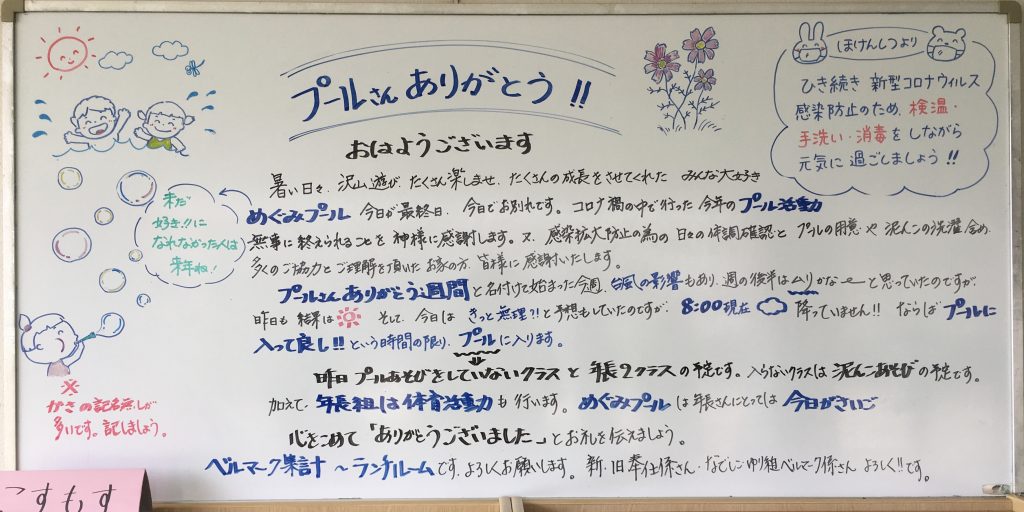 プールさん ありがとう!!
おはようございます
暑い日々、沢山遊び、たくさん楽しませ、たくさんの成長をさせてくれた みんな大好き
めぐみプール 今日が最終日、今日でお別れです。コロナ禍の中で行った今年のプール活動
無事に終えられることを神様に感謝します。又、感染拡大防止の為の日々の体調確認とプールの用意や泥んこの洗濯含め
多くのご協力とご理解を頂いたお家の方、皆様に感謝いたします。
プールさんありがとう週間と名付けて始まった今週、台風の影響もあり、週の後半はムリかな〜と思っていたのですが、
昨日も結果は そして、今日は きっと無理?!と予想もしていたのですが、8:00現在 降っていません!! ならばプールに
入って良し!!という時間の限り、プールに入ります。
昨日プールあそびをしていないクラスと年長2クラスの予定です。入らないクラスは泥んこあそびの予定です。
加えて、年長組は体育活動も行います。めぐみプールは年長さんにとっては今日がさいご
心をこめて「ありがとうございました」とお礼を伝えましょう。
ベルマーク集計 〜ランチルームです。よろしくお願いします。新・旧奉仕係さん・なでしこ・ゆり組ベルマーク係さん よろしく!!です。
ほけんしつより
ひき続き 新型コロナウィルス
感染防止のため、検温・
手洗い・消毒をしながら
元気に過ごしましょう!!
まだ
好き!!に
なれなかった人は
来年ね!
※
かさの記名無しが
多いです。記しましょう。
こすもす